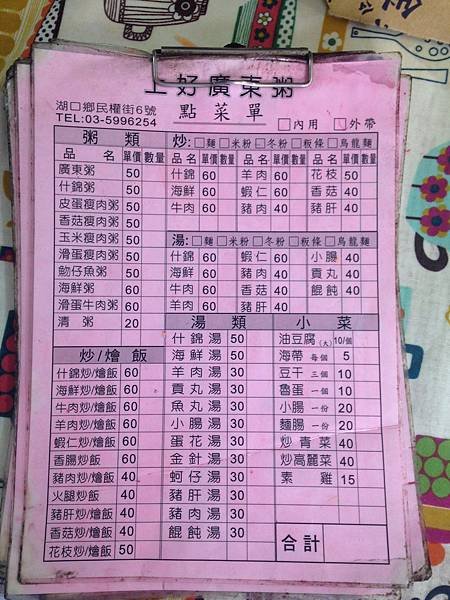 上好廣東粥
湖口鄉民權街6號
點菜單
TEL:03-5996254
□內用 □外帶
粥類
品名 單價 數量
廣東粥 50
什錦粥 50
皮蛋瘦肉粥 50
香菇瘦肉粥 50
玉米瘦肉粥 50
滑蛋瘦肉粥 50
魩仔魚粥 50
海鮮粥 60
滑蛋牛肉粥 60
清粥 20
炒/燴飯
什錦炒/燴飯 60
海鮮炒/燴飯 60
牛肉炒/燴飯 60
羊肉炒/燴飯 60
蝦仁炒/燴飯 60
香腸炒飯 60
豬肉炒/燴飯 40
火腿炒飯 40
豬肝炒/燴飯 40
香菇炒/燴飯 40
花枝炒/燴飯 50
炒:□麵□米粉□冬粉□粄條□烏龍麵
品名 單價 數量 品名 單價 數量 品名 單價 數量
什錦 60 羊肉 60 花枝 50
海鮮 60 蝦仁 60 香菇 40
牛肉 60 豬肉 40 豬肝 40
湯:□麵□米粉□冬粉□粄條□烏龍麵
什錦 60 蝦仁 60 小腸 40
海鮮 60 豬肉 40 貢丸 40
牛肉 60 香菇 40 餛飩 40
羊肉 60 豬肝 40
湯類
什錦湯 50
海鮮湯 50
羊肉湯 30
貢丸湯 30
魚丸湯 30
小腸湯 30
蛋花湯 30
金針湯 30
蚵仔湯 30
豬肝湯 30
豬肉湯 30
餛飩湯 30
小菜
油豆腐(大) 10/個
海帶 每個 5
豆干 三個 10
魯蛋 一個 10
小腸 一份 20
麵腸 一份 20
炒青菜 40
炒高麗菜 40
素雞 15
合計